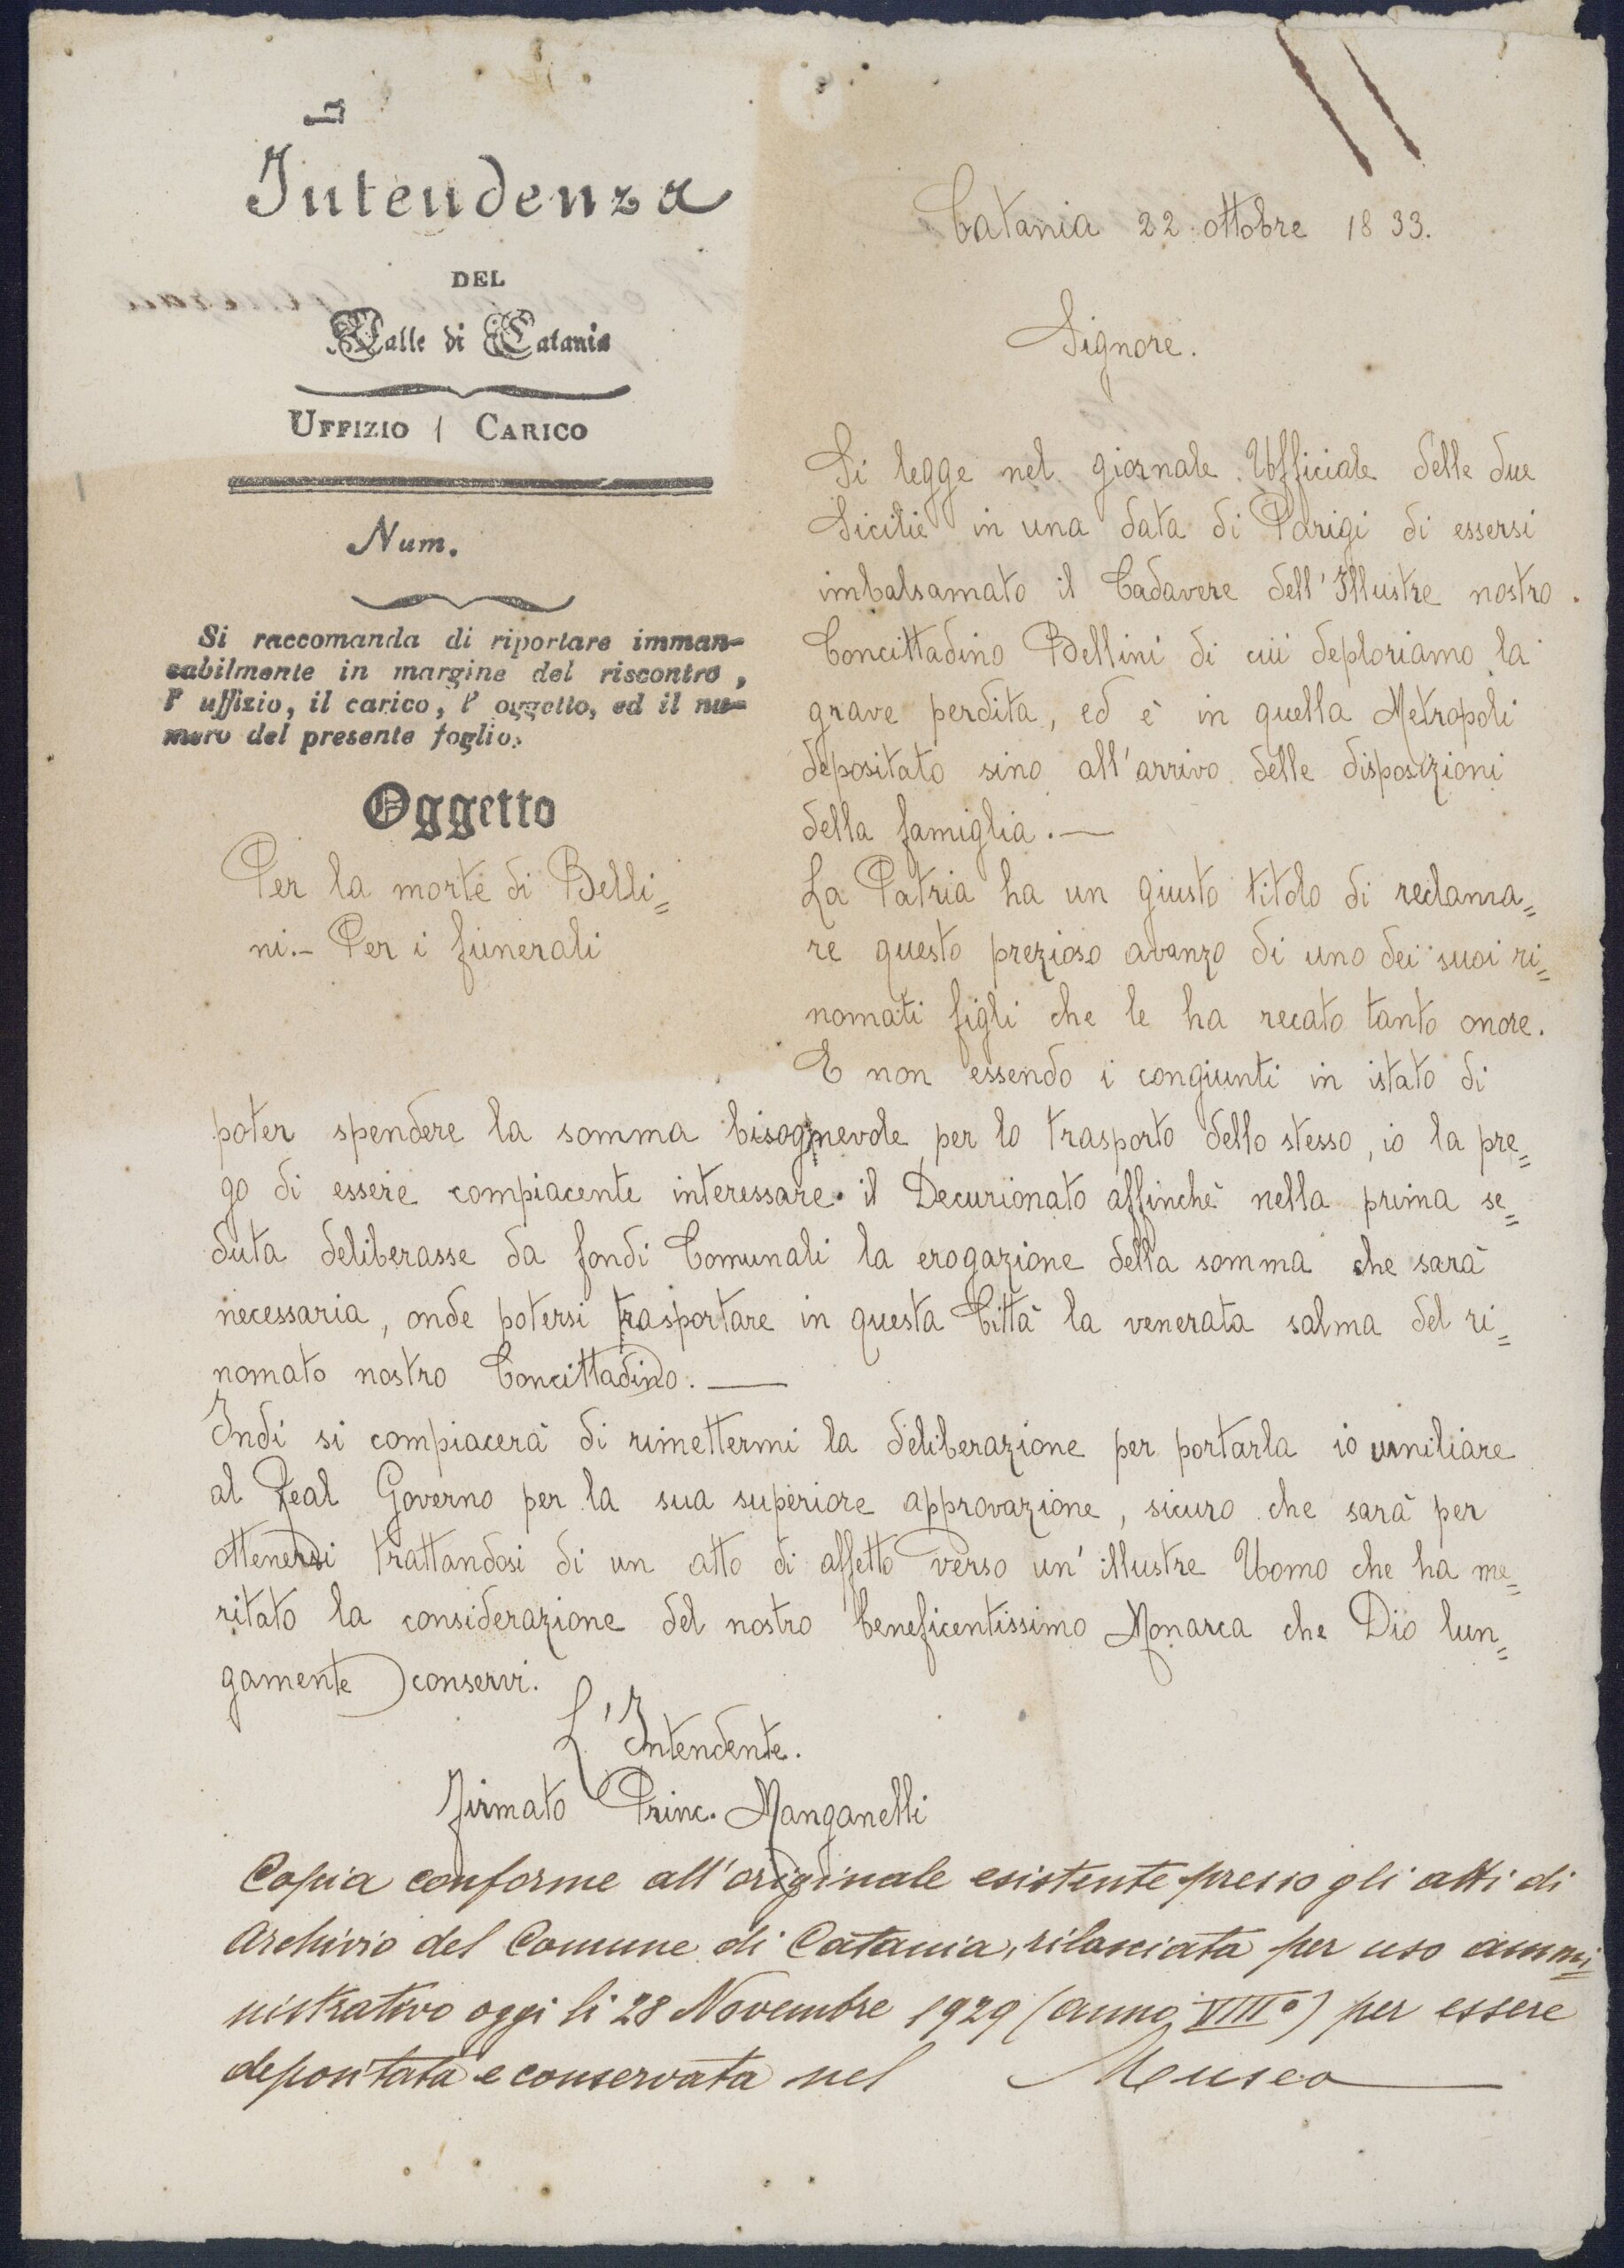 Intendenza
DEL
Valle di Catania
UFFIZIO 1 CARICO
Num.
Si raccomanda di riportare imman-
cabilmente in margine del riscontro,
l' uffizio, il carico, l' oggetto, ed il nu-
mero del presente foglio.
Oggetto
Per la morte di Belli=
ni.- Per i funerali
Catania 22 ottobre 1833.
Signore.
Si legge nel giornale Ufficiale delle due
Sicilie in una data di Parigi di essersi
imbalsamato il Cadavere dell'Illustre nostro
Concittadino Bellini di cui deploriamo la
grave perdita, ed è in quella Metropoli
depositato sino all'arrivo delle disposizioni
della famiglia.—
La Patria ha un giusto titolo di reclama=
re questo prezioso avanzo di uno dei suoi ri=
nomati figli che le ha recato tanto onore.
E non essendo i congiunti in istato di
poter spendere la somma bisognevole per lo trasporto dello stesso, io la pre=
go di essere compiacente interessare il Decurionato affinchè nella prima se=
duta deliberasse da fondi Comunali la erogazione della somma che sarà
necessaria, onde potersi trasportare in questa Città la venerata salma del ri=
nomato nostro Concittadino.—
Indi si compiacerà di rimettermi la deliberazione per portarla io umiliare
al Real Governo per la sua superiore approvazione, sicuro che sarà per
ottenersi trattandosi di un atto di affetto verso un'illustre Uomo che ha me=
ritato la considerazione del nostro beneficentissimo Monarca che Dio lun=
gamente conservi.
L'Intendente.
Firmato Princ. Manganelli
Copia conforme all'originale esistente presso gli atti di
Archivio del Comune di Catania, rilasciata per uso ammi=
nistrativo oggi li 28 Novembre 1929 (anno VIII°) per essere
depositata e conservata nel Museo